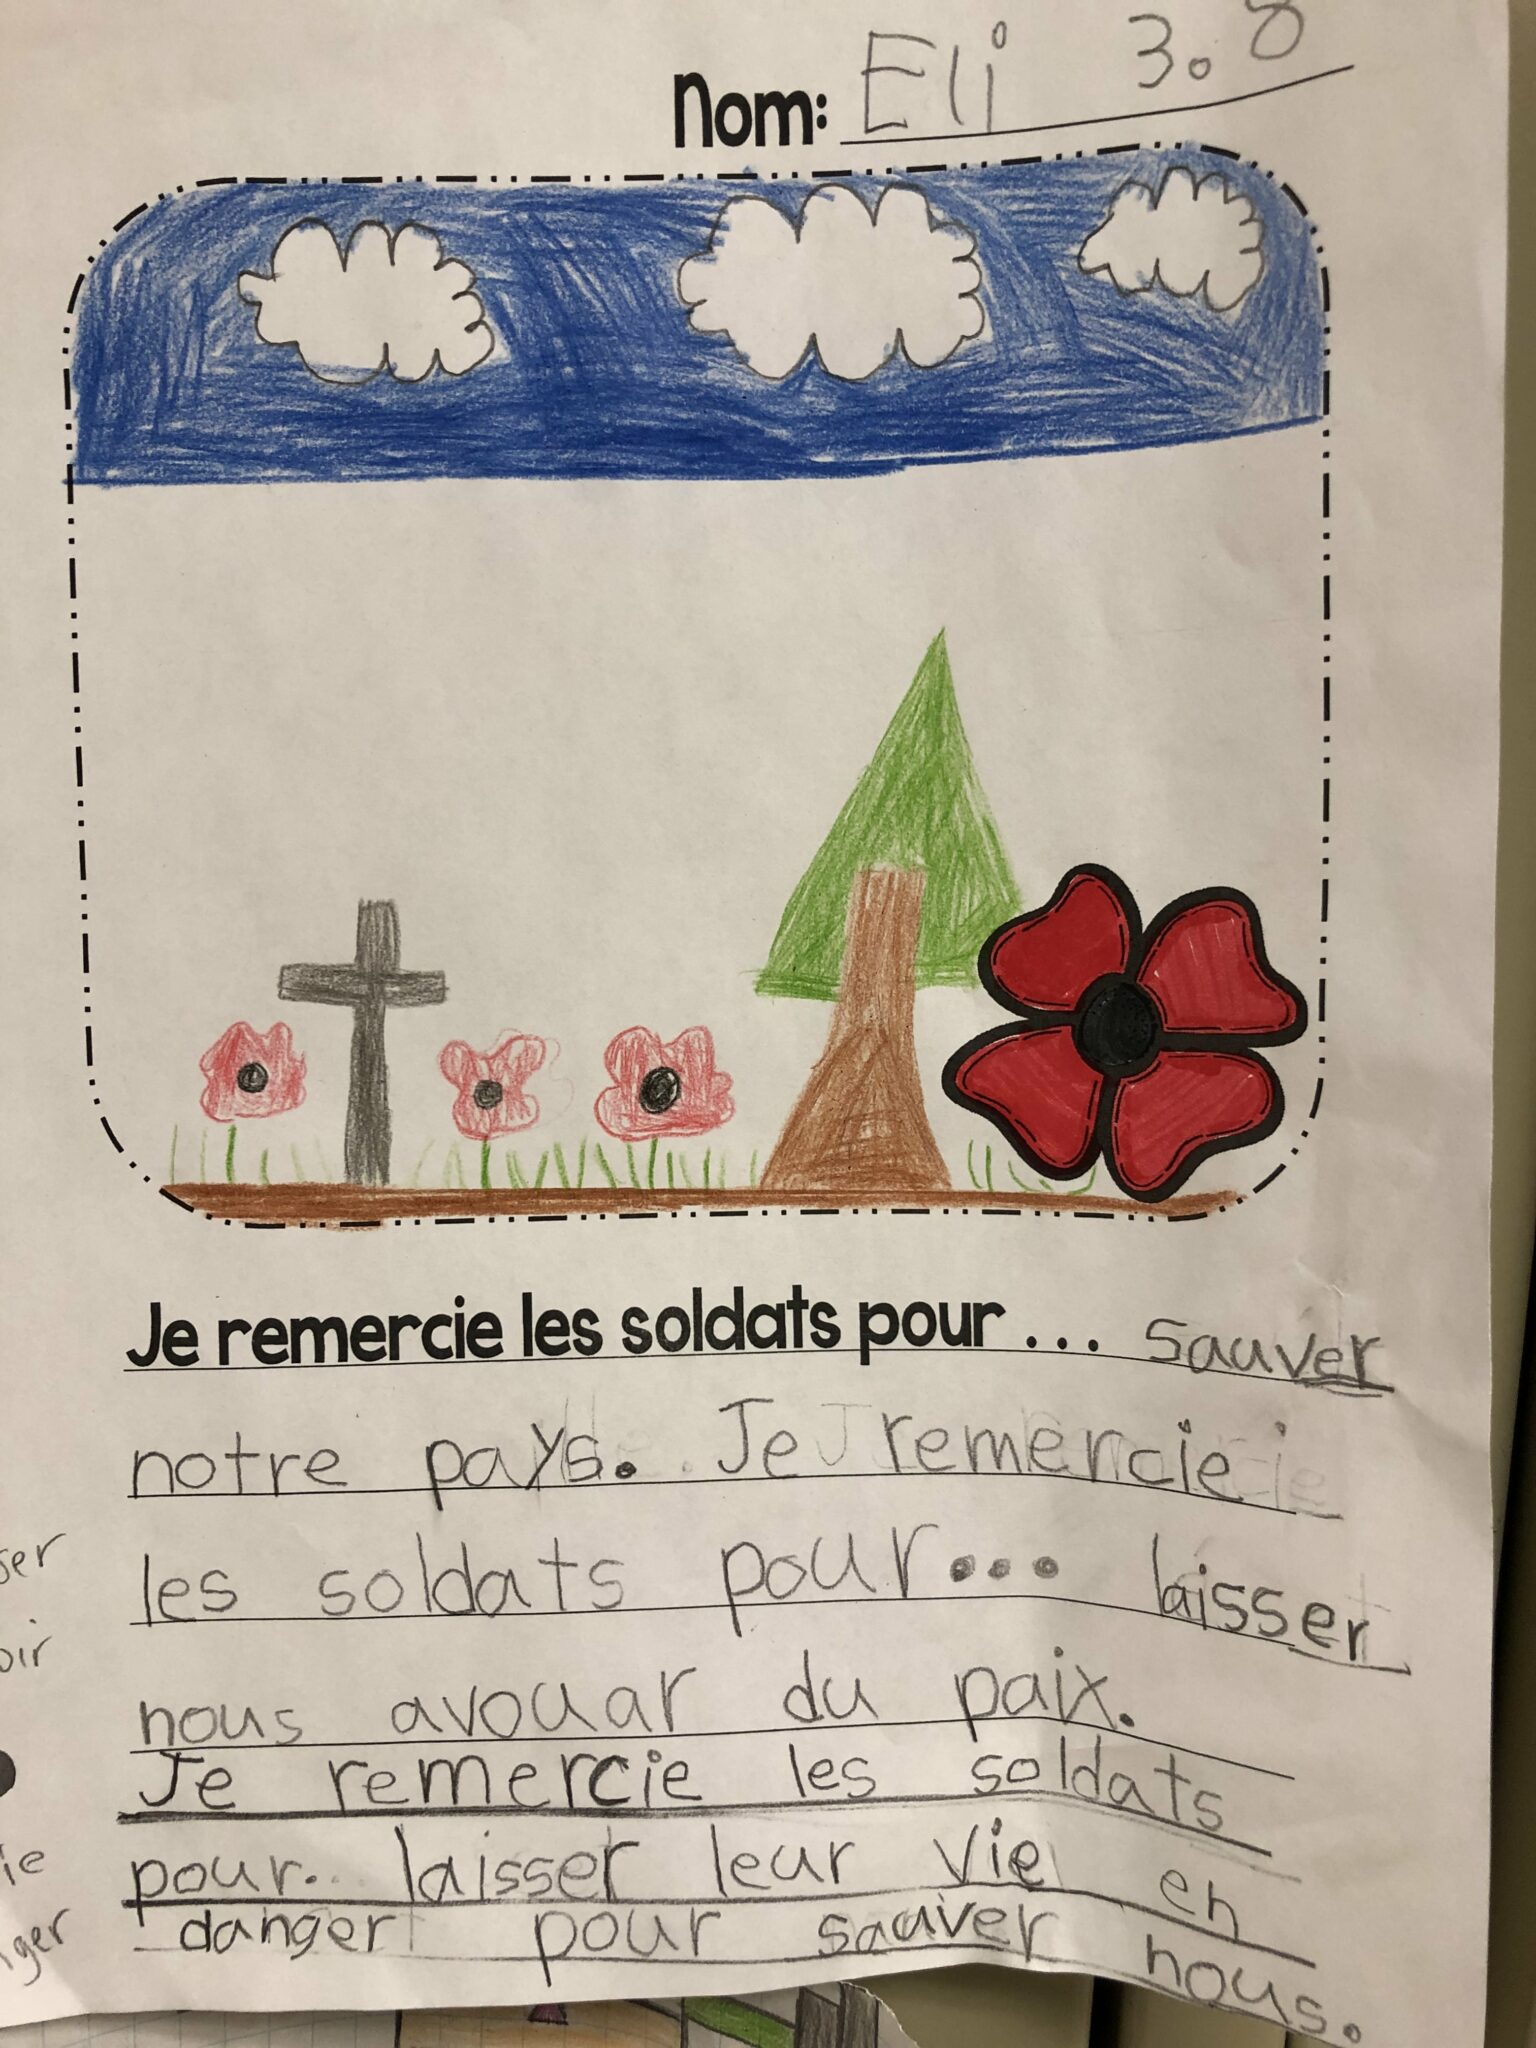 Nom: Eli 3.8
Je remercie les soldats pour... sauver
notre pays. Je remercie
les soldats pour... laisser
nous avouar du paix.
Je remercie les soldats
pour... laisser leur vie en
danger pour sauver nous.